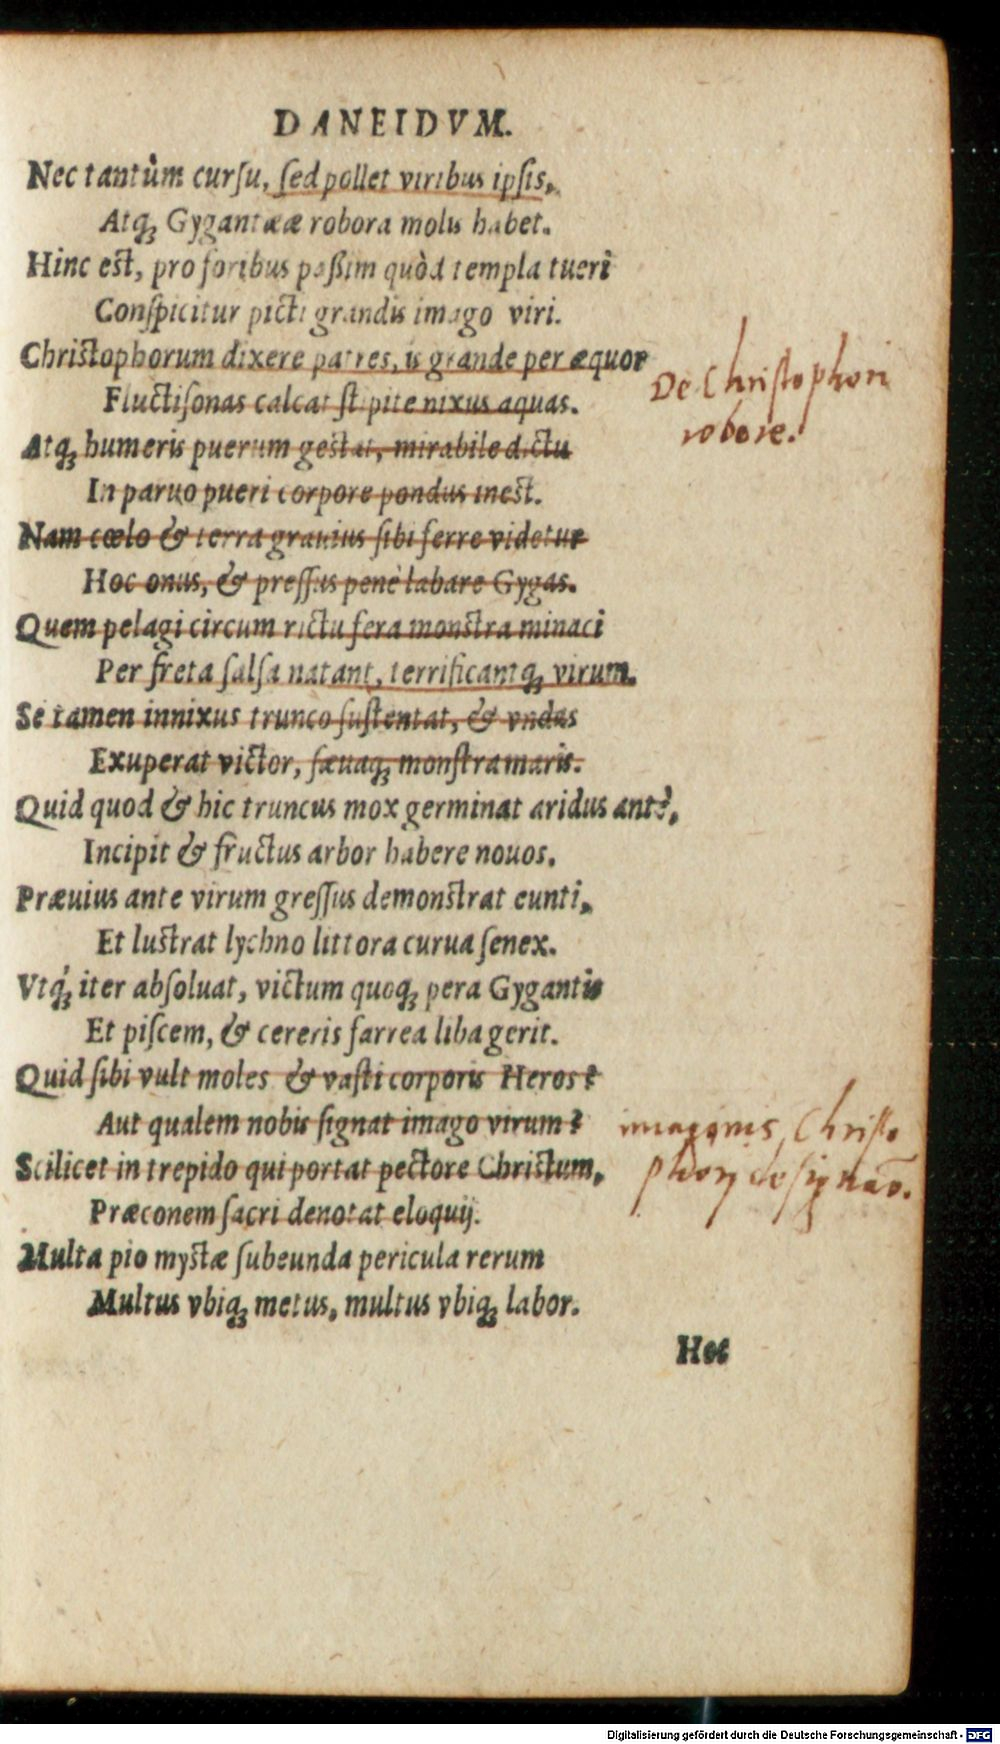 DANEIDVM.
Nec tantùm curſu, ſed pollet viribus ipſis,
Atq; Gygantææ robora molis habet.
Hinc eſt, pro foribus paßim quòd templa tueri
Conſpicitur picti grandis imago viri.
Chriſtophorum dixere patres, is grande per æquor
Fluctiſonas calcat ſtipite nixus aquas.
De Christophori
robore.
Atq; humeris puerum geſtat, mirabile dictu
In paruo pueri corpore pondus ineſt.
Nam cœlo & terra grauius ſibi ferre videtur
Hoc onus, & preſſus penè labare Gygas.
Quem pelagi circum rictu fera monſtra minaci
Per freta ſalſa natant, terrificantq; virum.
Se tamen innixus trunco ſuſtentat, & vndas
Exuperat victor, ſæuaq; monſtra maris.
Quid quod & hic truncus mox germinat aridus antè,
Incipit & fructus arbor habere nouos.
Præuius ante virum greſſus demonſtrat eunti,
Et luſtrat lychno littora curua ſenex.
Vtq́; iter abſoluat, victum quoq; pera Gygantis
Et piſcem, & cereris farrea liba gerit.
Quid ſibi vult moles & vaſti corporis Heros?
Aut qualem nobis ſignat imago virum?
imaginis Christo
phorj designaō.
Scilicet in trepido qui portat pectore Chriſtum,
Præconem ſacri denotat eloquij.
Multa pio myſtæ ſubeunda pericula rerum
Multus vbiq; metus, multus vbiq; labor.
Hoc
Digitalisierung gefördert durch die Deutsche Forschungsgemeinschaft - DFG